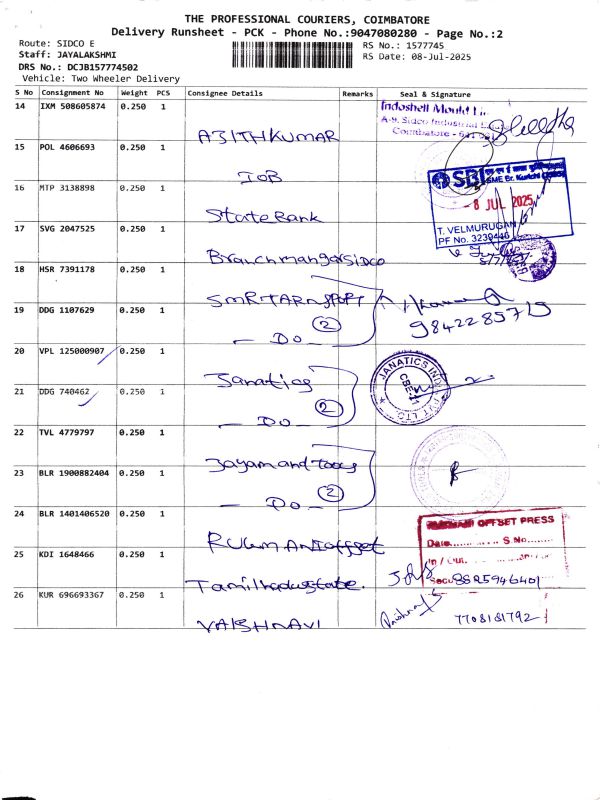 THE PROFESSIONAL COURIERS, COIMBATORE
Delivery Runsheet - PCK - Phone No.:9047080280 - Page No.:2
Route: SIDCO E
RS No.: 1577745
Staff: JAYALAKSHMI
RS Date: 08-Jul-2025
DRS No.: DCJB157774502
Vehicle: Two Wheeler Delivery
S No Consignment No Weight PCS Consignee Details Remarks Seal & Signature
14 IXM 508605874 0.250 1
Indoshell Mould Li
A-9, Sidco Industrial
Coimbatore - 641
AJITHKUMAR
15 POL 4606693 0.250 1
IOB
SBI
16 MTP 3138898 0.250 1
- 8 JUL 2025
State Bank
17 SVG 2047525 0.250 1
T. VELMURUGAN
PF No. 3239446
Branch manger SIDCO
18 HSR 7391178 0.250 1
SMRTARNSPORT
19 DDG 1107629 0.250 1
2
9842285715
- Do -
20 VPL 125000907 0.250 1
JANATICS INDIA PVT LTD
CBE-21
Janatics
21 DDG 740462 0.250 1
2
- Do -
22 TVL 4779797 0.250 1
Jayam and tools
23 BLR 1900882404 0.250 1
2
- Do -
24 BLR 1401406520 0.250 1
OFFSET PRESS
Date S.No.
In / Out
RUGMANI offset
25 KDI 1648466 0.250 1
8825946401
Tamilnadu state.
26 KUR 696693367 0.250 1
7708181792
VAISHNAVI